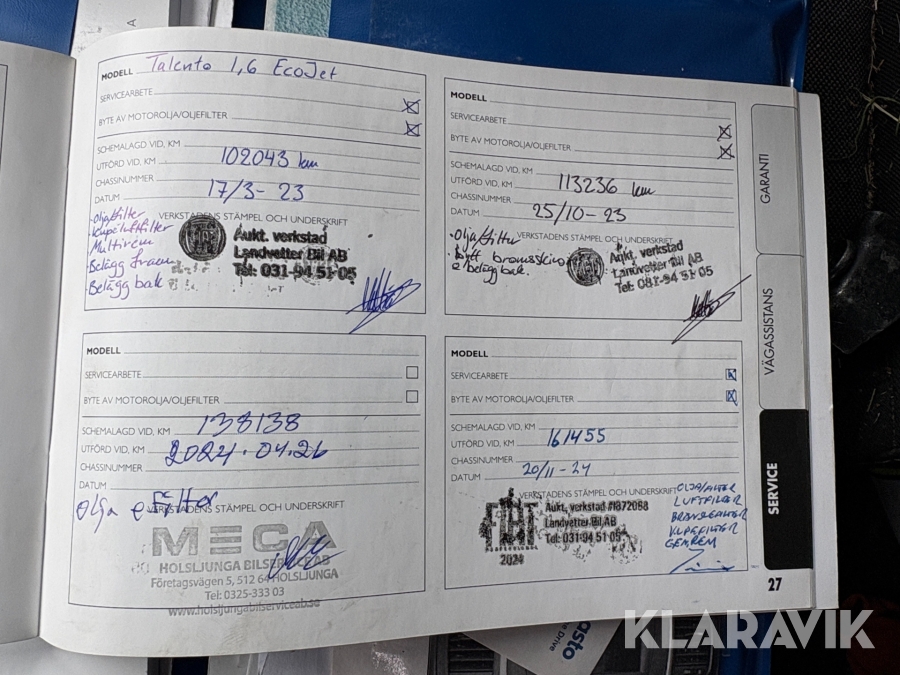 MODELL Talento 1,6 EcoJet
SERVICEARBETE
BYTE AV MOTOROLJA/OLJEFILTER
SCHEMALAGD VID, KM
UTFÖRD VID, KM 102043 km
CHASSINUMMER
DATUM 17/3-23
VERKSTADENS STÄMPEL OCH UNDERSKRIFT
· olja/filter
· kupeluftfilter
· Multirem
· Belägg fram
· Belägg bak
Aukt. verkstad
Landvetter Bil AB
Tel: 031-94 51 05
MODELL
SERVICEARBETE
BYTE AV MOTOROLJA/OLJEFILTER
SCHEMALAGD VID, KM
UTFÖRD VID, KM 113236 km
CHASSINUMMER
DATUM 25/10-23
VERKSTADENS STÄMPEL OCH UNDERSKRIFT
· olja/filter
· bytt bromsskivor
& belägg bak.
Aukt. verkstad
Landvetter Bil AB
Tel: 031-94 51 05
MODELL
SERVICEARBETE
BYTE AV MOTOROLJA/OLJEFILTER
SCHEMALAGD VID, KM 138138
UTFÖRD VID, KM 2024.04.26
CHASSINUMMER
DATUM
olja & Filter
VERKSTADENS STÄMPEL OCH UNDERSKRIFT
MECA
HOLSLJUNGA BILSERVICE AB
Företagsvägen 5, 512 64 HOLSLJUNGA
Tel: 0325-333 03
www.holsljungabilserviceab.se
MODELL
SERVICEARBETE
BYTE AV MOTOROLJA/OLJEFILTER
SCHEMALAGD VID, KM
UTFÖRD VID, KM 161455
CHASSINUMMER
DATUM 20/11-24
VERKSTADENS STÄMPEL OCH UNDERSKRIFT
FIAT
2024
Aukt. verkstad #1872088
Landvetter Bil AB
Tel: 031-94 51 05
OLJA/FILTER
LUFTFILTER
BRÄNSLEFILTER
KUPEFILTER
GENREM
GARANTI
VÄGASSISTANS
SERVICE
27
KLARAVIK